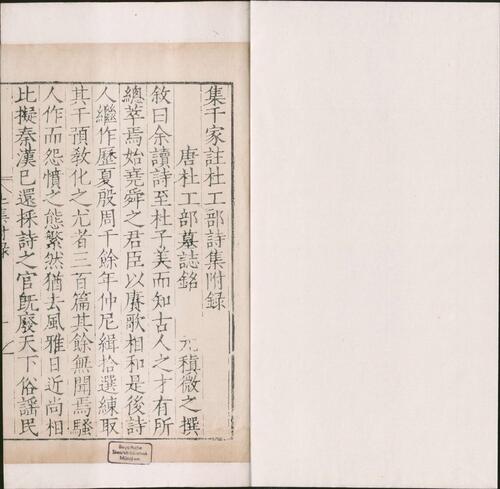 集千家註杜工部詩集附錄
唐杜工部墓誌銘 元稹微之撰
敘曰余讀詩至杜子美而知古人之才有所
總萃焉始堯舜之君臣以賡歌相和是後詩
人繼作歷夏殷周千餘年仲尼緝拾選練取
其干預敎化之尤者三百篇其餘無聞焉騷
人作而怨憤之態繁然猶去風雅日近尚相
比擬秦漢已還採詩之官旣廢天下俗謡民
杜集附錄
Bayerische
Staatsbibliothek
München